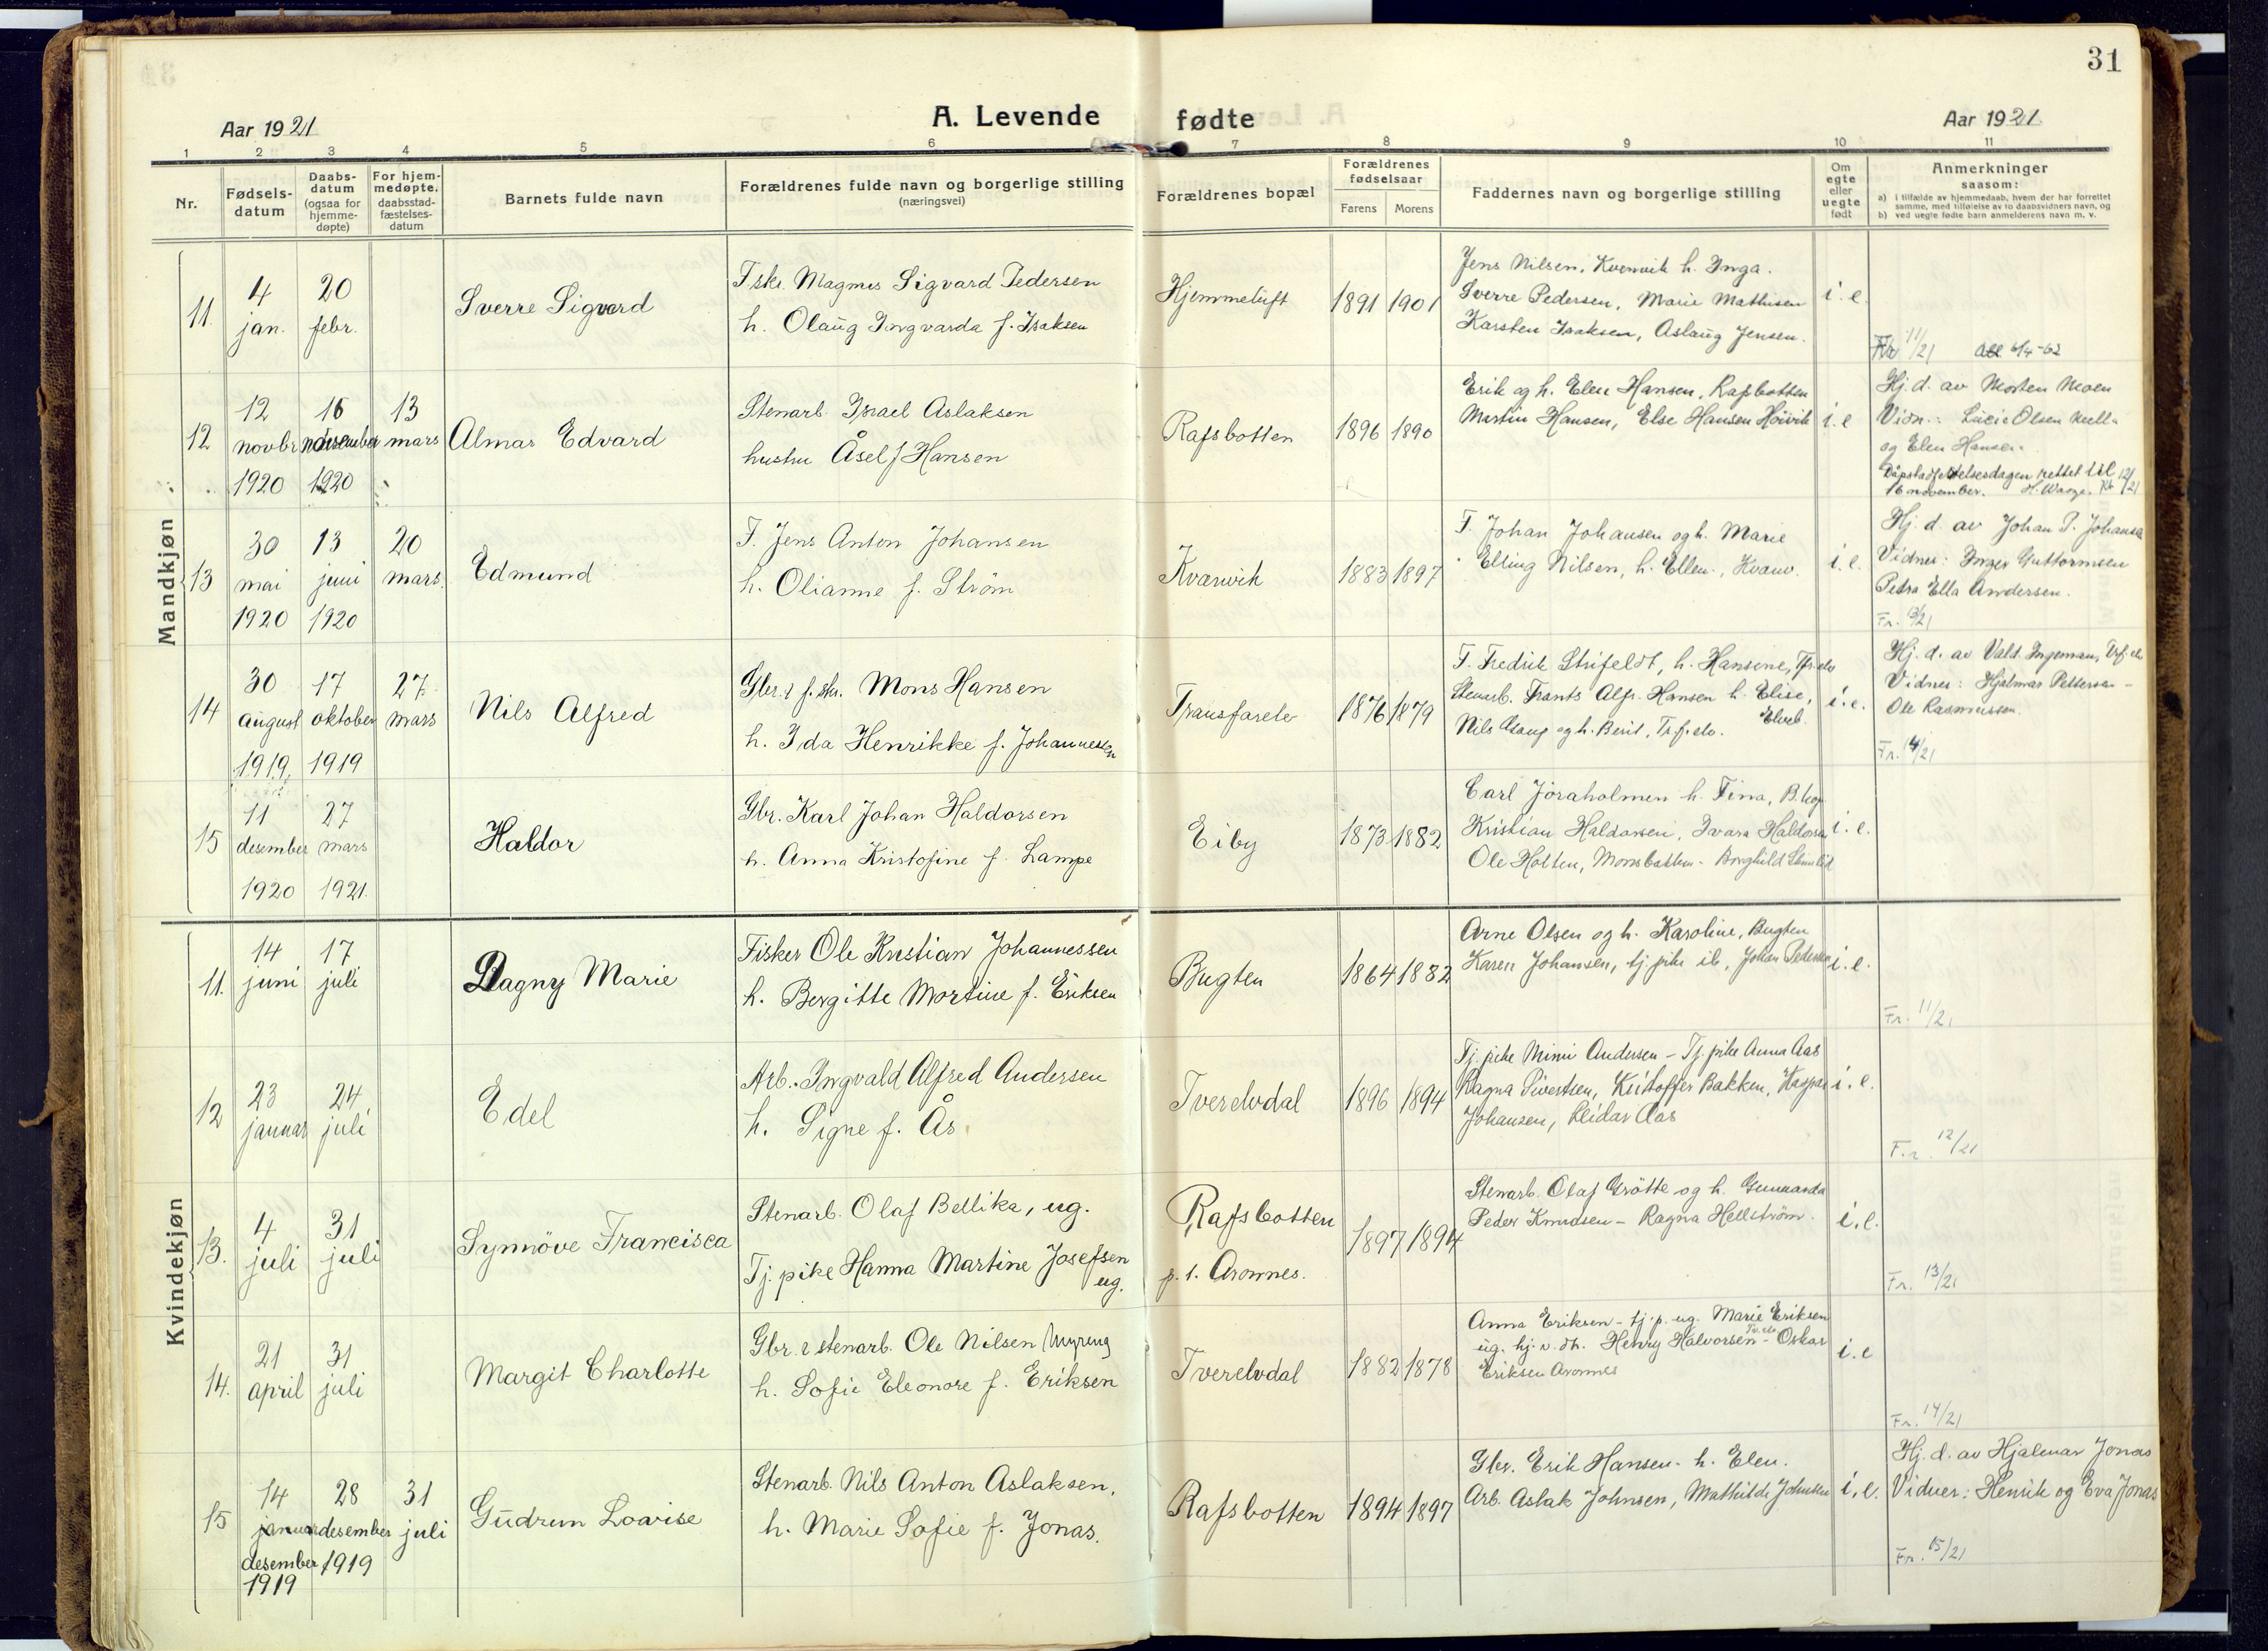 31
A. Levende fødte
Aar 1921
Aar 1921
1 2 3 4 5 6 7 8 9 10 11
Nr.
Fødsels-
datum
Daabs-
datum
(ogsaa for
hjemme-
døpte)
For hjem-
medøpte,
daabsstad-
fæstelses-
datum
Barnets fulde navn
Forældrenes fulde navn og borgerlige stilling
(næringsvei)
Forældrenes bopæl
Forældrenes
fødselsaar
Farens Morens
Faddernes navn og borgerlige stilling
Om
egte
eller
uegte
født
Anmerkninger
saasom:
a) i tilfælde av hjemmedaab, hvem der har forrettet
samme, med tilføielse av to daabsvidners navn, og
b) ved uegte fødte barn anmelderens navn m. v.
Mandkjøn
11.
4
jan.
20
febr.
Sverre Sigvard
Fskr. Magnus Sigvard Pedersen
h. Olaug Ingvarda f. Isaksen
Hjemmeluft
1891 1901
Jens Nilsen, Kvenvik h. Inga.
Sverre Pedersen, Marie Mathisen
Karsten Isaksen, Aslaug Jensen.
i. e.
Fr 11/21 6/4-62
12
12
novbr
1920
16
november
1920
13
mars
Almar Edvard
Stenarb. Israel Aslaksen
hustru Åsel f Hansen
Rafsbotten
1896 1890
Erik og h. Elen Hansen, Rafsbotten
Martin Hansen, Else Hansen Höivik
i. e
Hj. d. av Morten Moen
Vidn.: Lucie Olsen
og Elen Hansen.
rettet til
16 november. H. Waage. 12/21
13
30
mai
1920
13
juni
1920
20
mars.
Edmund
F. Jens Anton Johansen
h. Olianne f. Ström
Kvænvik
1883 1897
F. Johan Johansen og h. Marie
Elling Nilsen, h. Ellen., Kvænv.
i. e.
Hj. d. av Johan P. Johansen
Vidner: Inger Guttormsen
Petra Ella Andersen.
Fr. 13/21
14
30
august
1919
17
oktober
1919
27
mars
Nils Alfred
Gbr. & f.skr. Mons Hansen
h. Ida Henrikke f. Johannessen
Transfarelv
1876 1879
F. Fredrik Strifeldt, h. Hansine, Tfr.elv
Stenarb. Frants Alfr. Hansen h. Elise,
Elveb.
Nils Aslaup og h. Berit, Tr.f.elv.
i. e.
Hj. d. av Vald. Ingeman, Trf.elv
Vidner: Hjalmar Pettersen -
Ole Rasmussen.
Fr. 14/21
15
11
desember
1920
27
mars
1921.
Haldor
Gbr. Karl Johan Haldorsen
h. Anna Kristofine f. Lampe
Eiby
1873 1882
Carl Jöraholmen h. Tina, B.kop
Kristian Haldorsen, Ivara Haldorsen
Ole Holten, Monsbatten - Borghild Simlid
i. e.
Kvindekjøn
11.
14
juni
17
juli
Dagny Marie
Fisker Ole Kristian Johannessen
h. Bergitte Martine f. Eriksen
Bugten
1864 1882
Arne Olsen og h. Karoline, Bugten
Karen Johansen, tj.pike ib, Johan Pedersen
i. e.
Fr. 11/21
12
23
januar
24
juli
Edel
Arb. Ingvald Alfred Andersen
h. Signe f. Ås.
Tverelvdal
1896 1894
Tj. pike Mimi Andersen - Tj. pike Anna Aas
Ragna Sivertsen, Kristoffer Bakken, Kaspar
Johansen, Reidar Aas
i. e.
Fr. 12/21
13.
4
juli
31
juli
Synnöve Francisca
Stenarb. Olaf Bellika, ug.
Tj. pike Hanna Martine Josefsen
ug.
Rafsbotten
p. t. Aronnes.
1897 1894
Stenarb. Olaf Grötte og h. Gunnarda
Peder Knudsen - Ragna Hellström.
i. e.
Fr. 13/21
14.
21
april
31
juli
Margit Charlotte
Gbr. & stenarb. Ole Nilsen Myreng
h. Sofie Eleonore f. Eriksen
Tverelvdal
1882 1878
Anna Eriksen - tj.p. ug. Marie Eriksen
Tv.elv
ug. hj. v. dh. Henry Halvorsen - Oskar
Eriksen Aronnes
i. e
Fr. 14/21
15
14
januar
desember
1919
28
desember
1919
31
juli
Gudrun Lovise
Stenarb. Nils Anton Aslaksen.
h. Marie Sofie f. Jonas.
Rafsbotten
1894 1897
Gbr. Erik Hansen - h. Elen.
Arb. Aslak Johnsen, Mathilde Johnsen
i. e.
Hj. d. av Hjalmar Jonas
Vidner: Henrik og Eva Jonas
Fr. 15/21